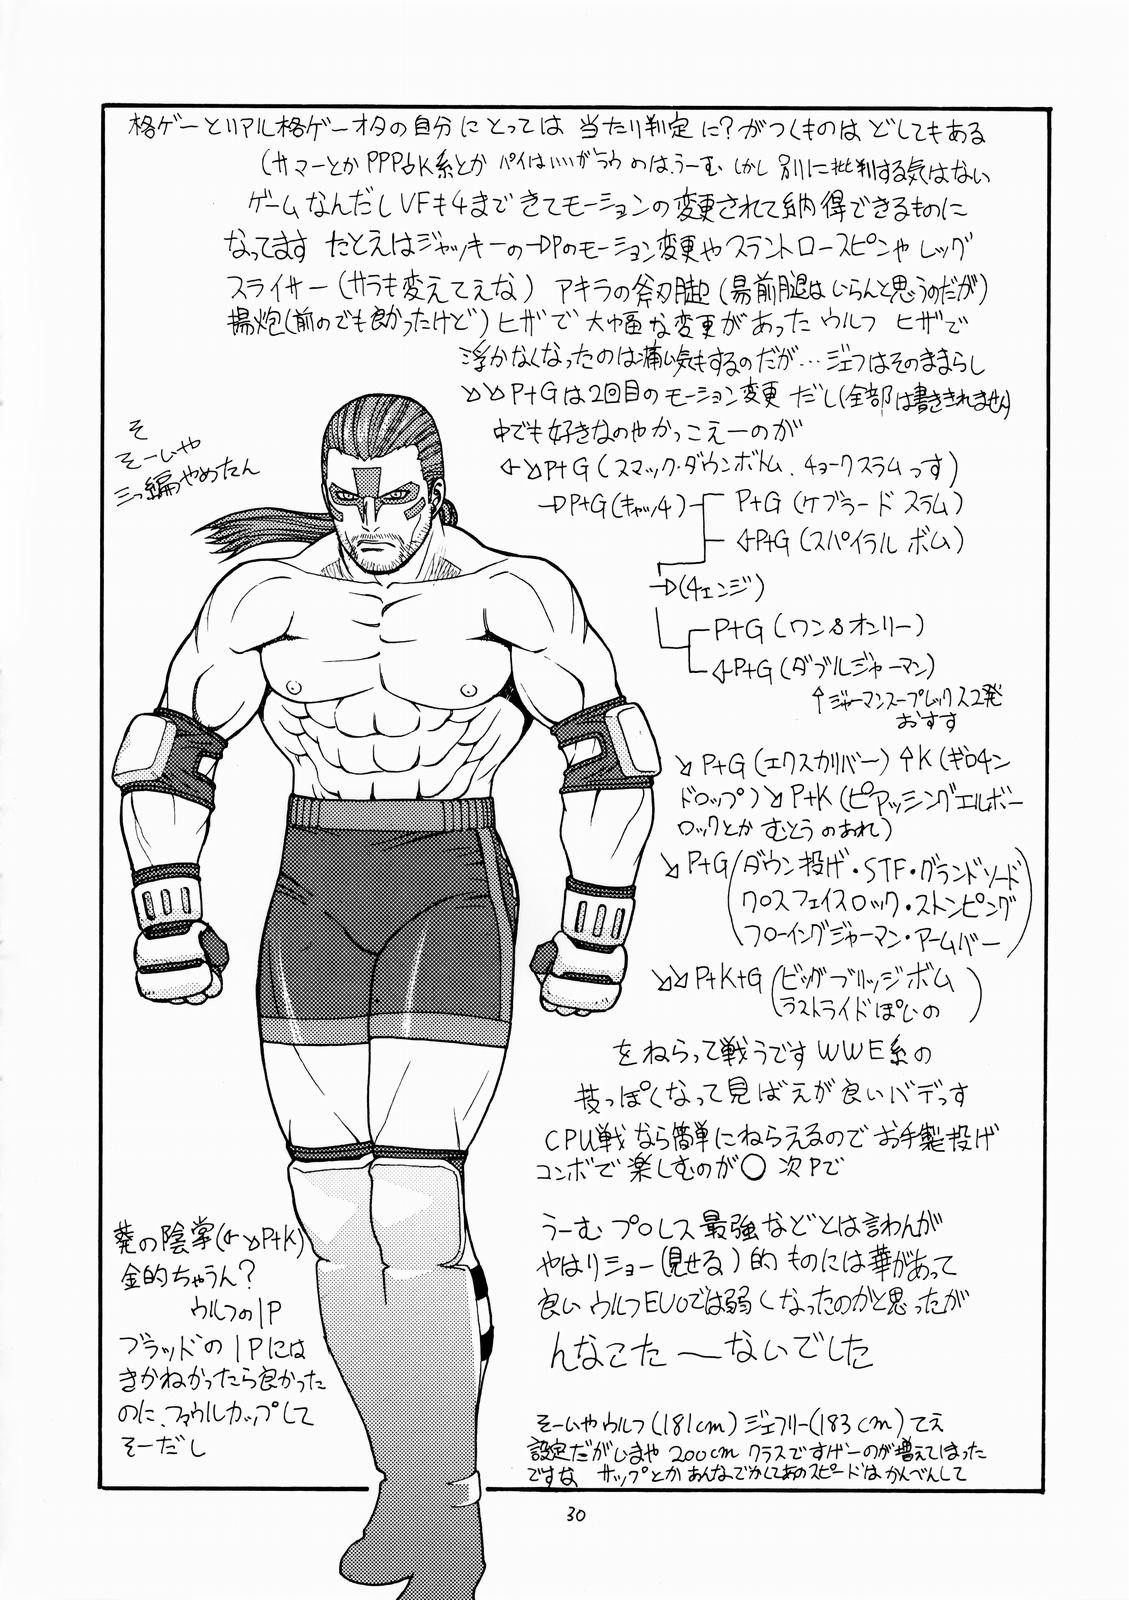 格ゲーとリアル格ゲーオタの自分にとっては 当たり判定に?がつくものは どしてもある
(サマーとか PPP↓K系とか パイはいいがラウのは、うーむ しかし 別に批判する気はない
ゲームなんだし VFも4まできてモーションの変更されて納得できるものに
なってます たとえばジャッキーの→Pのモーション変更や スラントロースピンや レッグ
スライサー (サラも変えてえな) アキラの斧刃脚 (昜前腿はいらんと思うのだが)
揚炮(前のでも良かったけど) ヒザで 大幅な変更があった ウルフ ヒザで
浮かなくなったのは痛い気もするのだが… ジェフはそのままらし
↘↘P+Gは2回目のモーション変更 だし(全部は書ききれません)
中でも好きなのやかっこえーのが
←↘P+G (スマック・ダウンボトム、チョークスラムっす)
→P+G(キャッチ) P+G (ケブラード スラム)
←P+G (スパイラル ボム)
→(チェンジ)
P+G (ワン&オンリー)
←P+G (ダブルジャーマン)
↑ジャーマンスープレックス2発
おすす
↘P+G (エクスカリバー) ↑K (ギロチン
ドロップ) ↘P+K (ピアッシングエルボー
ロックとか むとうのあれ)
↘P+G (ダウン投げ・STF・グランドソード
クロスフェイスロック・ストンピング
フローイングジャーマン・アームバー)
↘↘P+K+G (ビッグブリッジボム
ラストライドぽいの)
をねらって戦うです WWE系の
技っぽくなって見ばえが良いバデっす
CPU戦なら簡単にねらえるので お手製投げ
コンボで楽しむのが○ 次Pで
うーむ プロレス最強などとは言わんが
やはりショー(見せる)的ものには華があって
良い ウルフEVOでは弱くなったのかと思ったが
んなこた〜ないでした
そーいやウルフ(181cm) ジェフリー(183cm)てえ
設定だがいまや 200cmクラスですげーのが増えてしまった
ですな サップとか あんなでかしてあのスピードは かんべんして
そ
そーいや
三つ編やめたん
葵の陰掌(←↘P+K)
金的ちゃうん?
ウルフの1P
ブラッドの1Pには
きかねかったら良かった
のに、ファウルカップして
そーだし
30